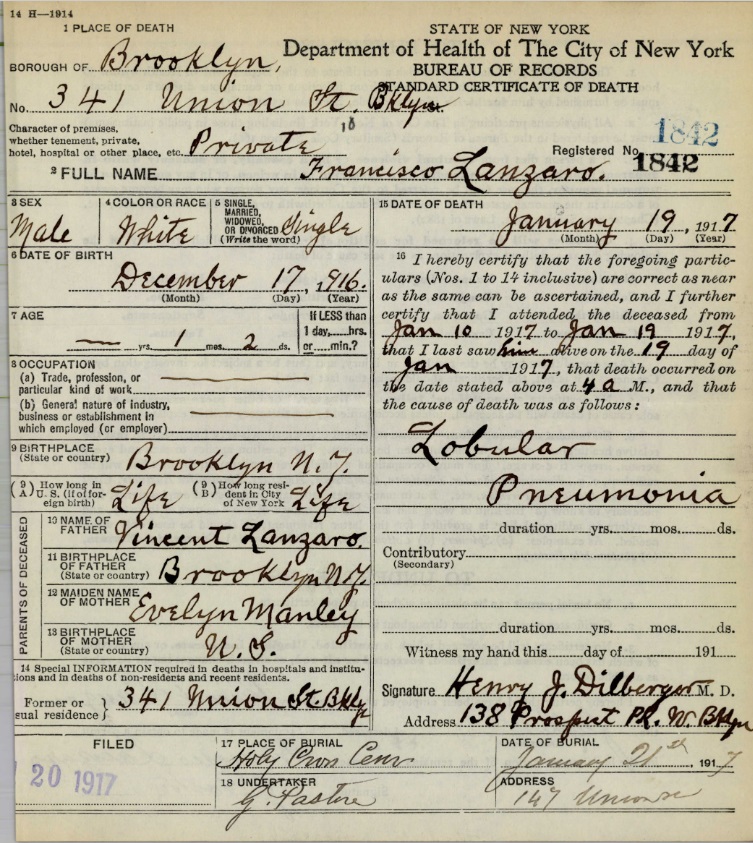 14 H—1914
1 PLACE OF DEATH
STATE OF NEW YORK
Department of Health of The City of New York
BUREAU OF RECORDS
STANDARD CERTIFICATE OF DEATH
BOROUGH OF Brooklyn,
No. 341 Union St. Bklyn.
Character of premises,
whether tenement, private,
hotel, hospital or other place, etc. Private
1842
Registered No. 1842
2 FULL NAME Francisco Lanzaro.
3 SEX
Male
4 COLOR OR RACE
White
5 SINGLE,
MARRIED,
WIDOWED,
OR DIVORCED
(Write the word)
Single
6 DATE OF BIRTH
December 17, 1916.
(Month) (Day) (Year)
7 AGE
— yrs. 1 mos. 2 ds.
If LESS than
1 day,....hrs.
or....min.?
8 OCCUPATION
(a) Trade, profession, or
particular kind of work
(b) General nature of industry,
business or establishment in
which employed (or employer)
9 BIRTHPLACE
(State or country)
Brooklyn N.Y.
(9 A) How long in
U. S. (if of for-
eign birth)
Life
(9 B) How long resi-
dent in City
of New York
Life
PARENTS OF DECEASED
10 NAME OF
FATHER
Vincent Lanzaro.
11 BIRTHPLACE
OF FATHER
(State or country)
Brooklyn N.Y.
12 MAIDEN NAME
OF MOTHER
Evelyn Manley
13 BIRTHPLACE
OF MOTHER
(State or country)
U. S.
14 Special INFORMATION required in deaths in hospitals and institu-
tions and in deaths of non-residents and recent residents.
Former or
usual residence } 341 Union St. Bklyn
15 DATE OF DEATH
January 19, 1917
(Month) (Day) (Year)
16 I hereby certify that the foregoing partic-
ulars (Nos. 1 to 14 inclusive) are correct as near
as the same can be ascertained, and I further
certify that I attended the deceased from
Jan 10 1917 to Jan 19 1917,
that I last saw him alive on the 19 day of
Jan 1917, that death occurred on
the date stated above at 4 a M., and that
the cause of death was as follows:
Lobular
Pneumonia
duration yrs. mos. ds.
Contributory
(Secondary)
duration yrs. mos. ds.
Witness my hand this day of 191
Signature Henry J. Dilberger M. D.
Address 138 Prospect Pk. W. Bklyn
FILED
20 1917
17 PLACE OF BURIAL
Holy Cross Cem
DATE OF BURIAL
January 21st, 1917
18 UNDERTAKER
G. Pastore
ADDRESS
147 Union St